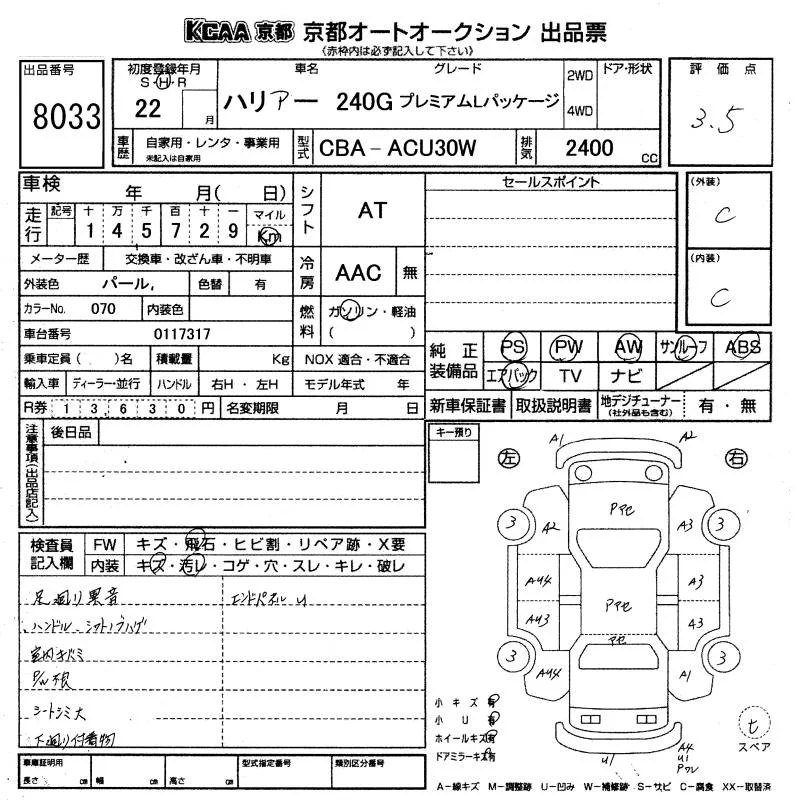 KCAA 京都 京都オートオークション 出品票
《赤枠内は必ず記入して下さい》
出品番号
8033
初度登録年月
S・H・R
22 月
車名 グレード
ハリアー 240G プレミアムLパッケージ
2WD
4WD
ドア・形状
車歴
自家用・レンタ・事業用
未記入は自家用
型式
CBA－ACU30W
排気
2400 CC
評価点
3.5
車検 年 月( 日)
走行
記号 十 万 千 百 十 一 マイル
1 4 5 7 2 9 Km
メーター歴 交換車・改ざん車・不明車
外装色 パール, 色替 有
カラーNo. 070 内装色
車台番号 0117317
乗車定員( )名 積載量 Kg
輸入車 ディーラー・並行 ハンドル 右H・左H
R券 13,630円 名変期限 月 日
シフト
AT
冷房
AAC 無
燃料
ガソリン・軽油
( )
NOX 適合・不適合
モデル年式 年
セールスポイント
(外装)
C
(内装)
C
純正装備品
PS PW AW サンルーフ ABS
エアバック TV ナビ
新車保証書 取扱説明書 地デジチューナー
(社外品も含む) 有・無
注意事項(出品店記入)
後日品
キー預り
検査員記入欄
FW キズ・飛石・ヒビ割・リペア跡・X要
内装 キズ・汚レ・コゲ・穴・スレ・キレ・破レ
足廻り異音 エンドパネル U
ハンドル、シフトノブハゲ
室内キバミ
P/W不良
シートシミ大
下廻り付着物
車庫証明用
長さ cm 幅 cm 高さ cm
型式指定番号
類別区分番号
左 右
A1 A2
3 3
Pマセ
A2 A3
A44 A3
Pマセ
A43 43
Pマセ
3 3
A44 A1
小キズ有
小U有
ホイールキズ有
ドアミラーキズ有
U1
A4
U1
Pワレ
七
スペア
A－線キズ M－調整跡 U－凹み W－補修跡 S－サビ C－腐食 XX－取替済